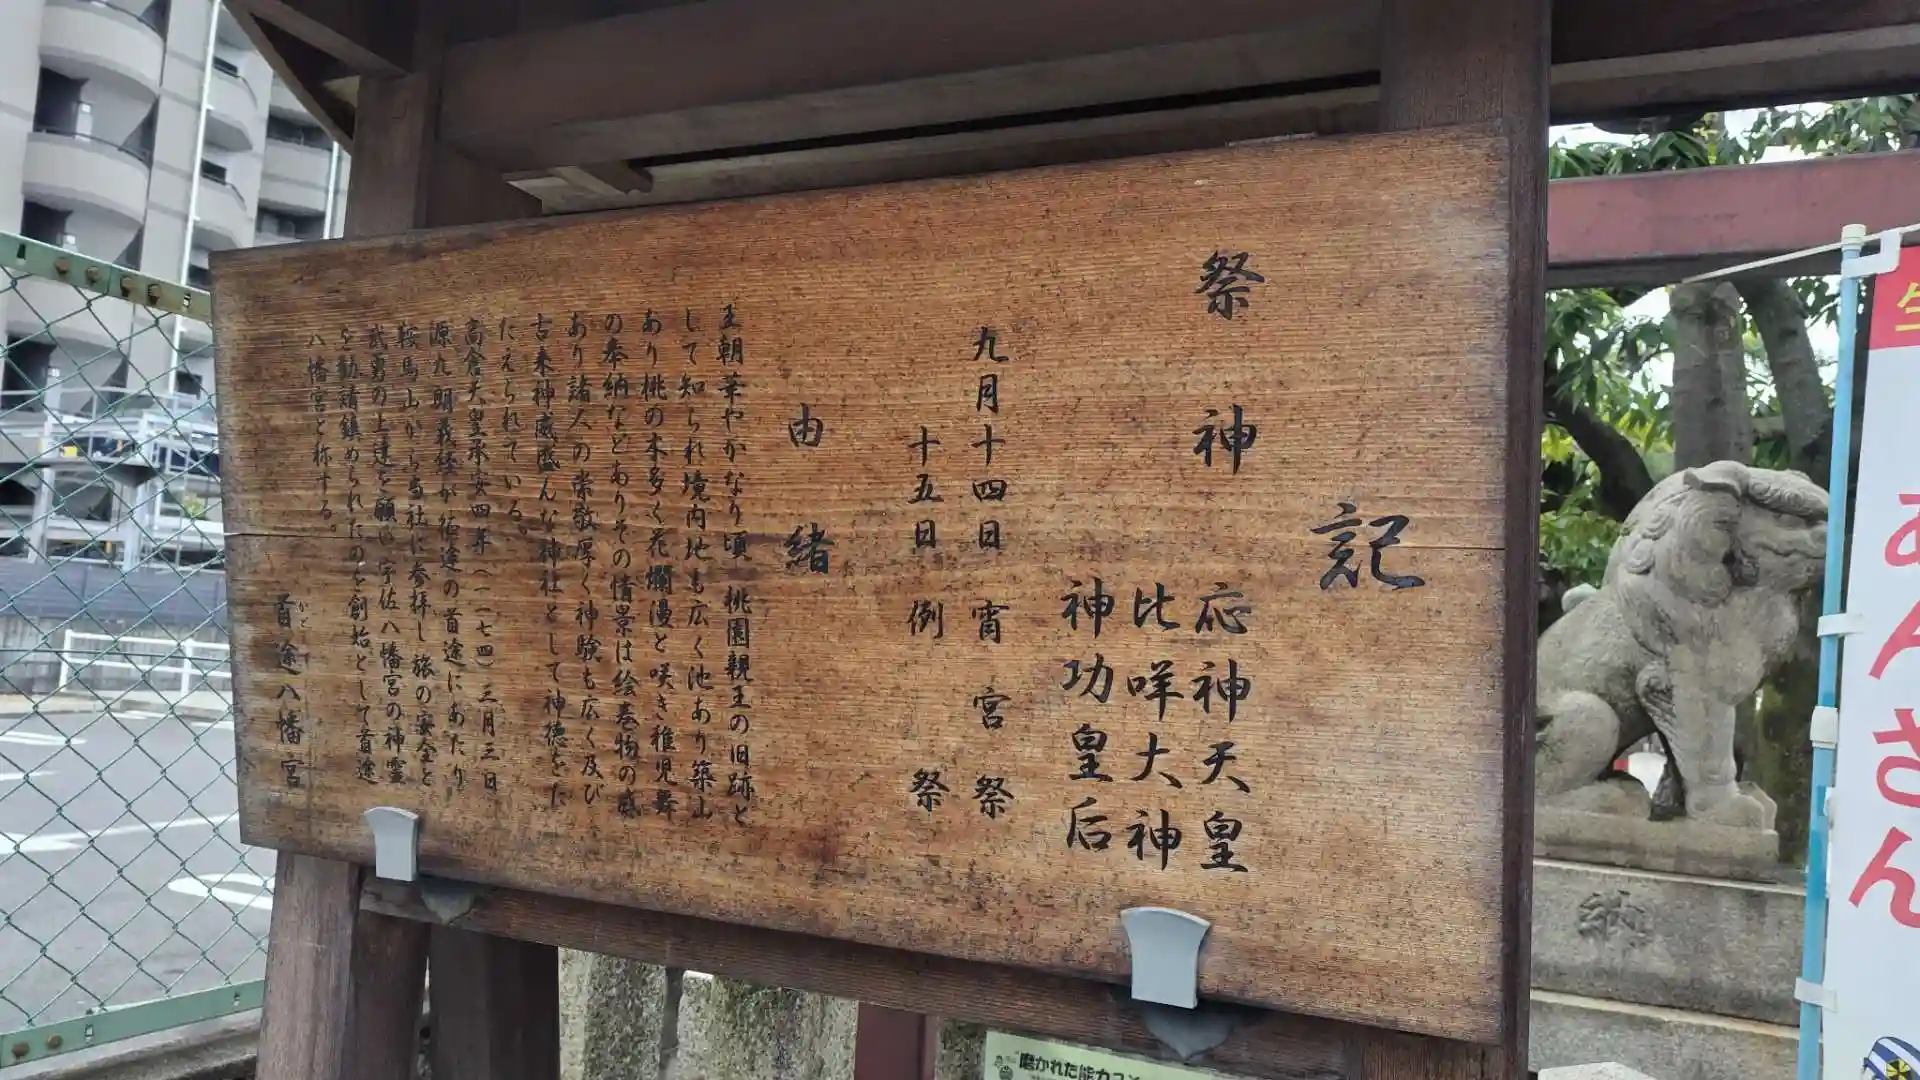 記
祭神 応神天皇
比咩大神
神功皇后
九月十四日 宵宮祭
十五日 例祭
由緒
王朝華やかなり頃 桃園親王の旧跡と
して知られ境内地も広く池あり築山
あり桃の木多く花爛漫と咲き稚児舞
の奉納などありその情景は絵巻物の感
あり諸人の崇敬厚く神験も広く及び
古来神威盛んな神社として神徳をた
たえられている。
高倉天皇承安四年(一一七四)三月三日
源九郎義経が征途の首途にあたり
鞍馬山から当社に参拝し旅の安全と
武勇の上達を願い宇佐八幡宮の神霊
を勧請鎮められたのを創始として首途
八幡宮と称する。
かど
首途八幡宮
磨かれた能力
あんさん
奉